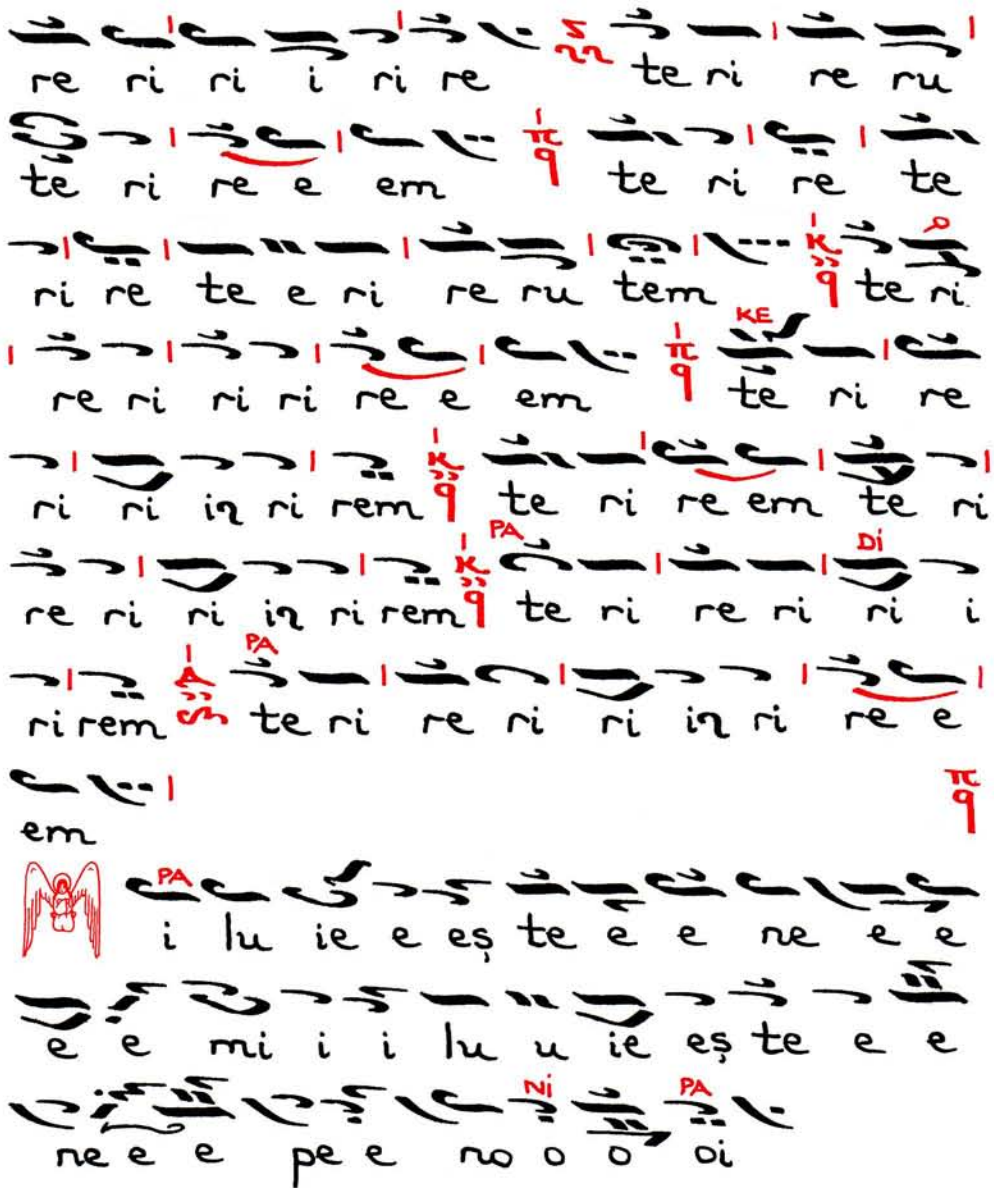 re ri ri i ri re te ri re ru
te ri re e em te ri re te
ri re te e ri re ru tem te ri
re ri ri ri re e em KE te ri re
ri ri in ri rem te ri re em te ri
re ri ri in ri rem PA te ri re ri Di ri i
ri rem PA te ri re ri ri in ri re e
em
PA i lu ie e eș te e e ne e e
e e mi i i lu u ie eș te e e
ne e e pe e no Ni o o PA oi